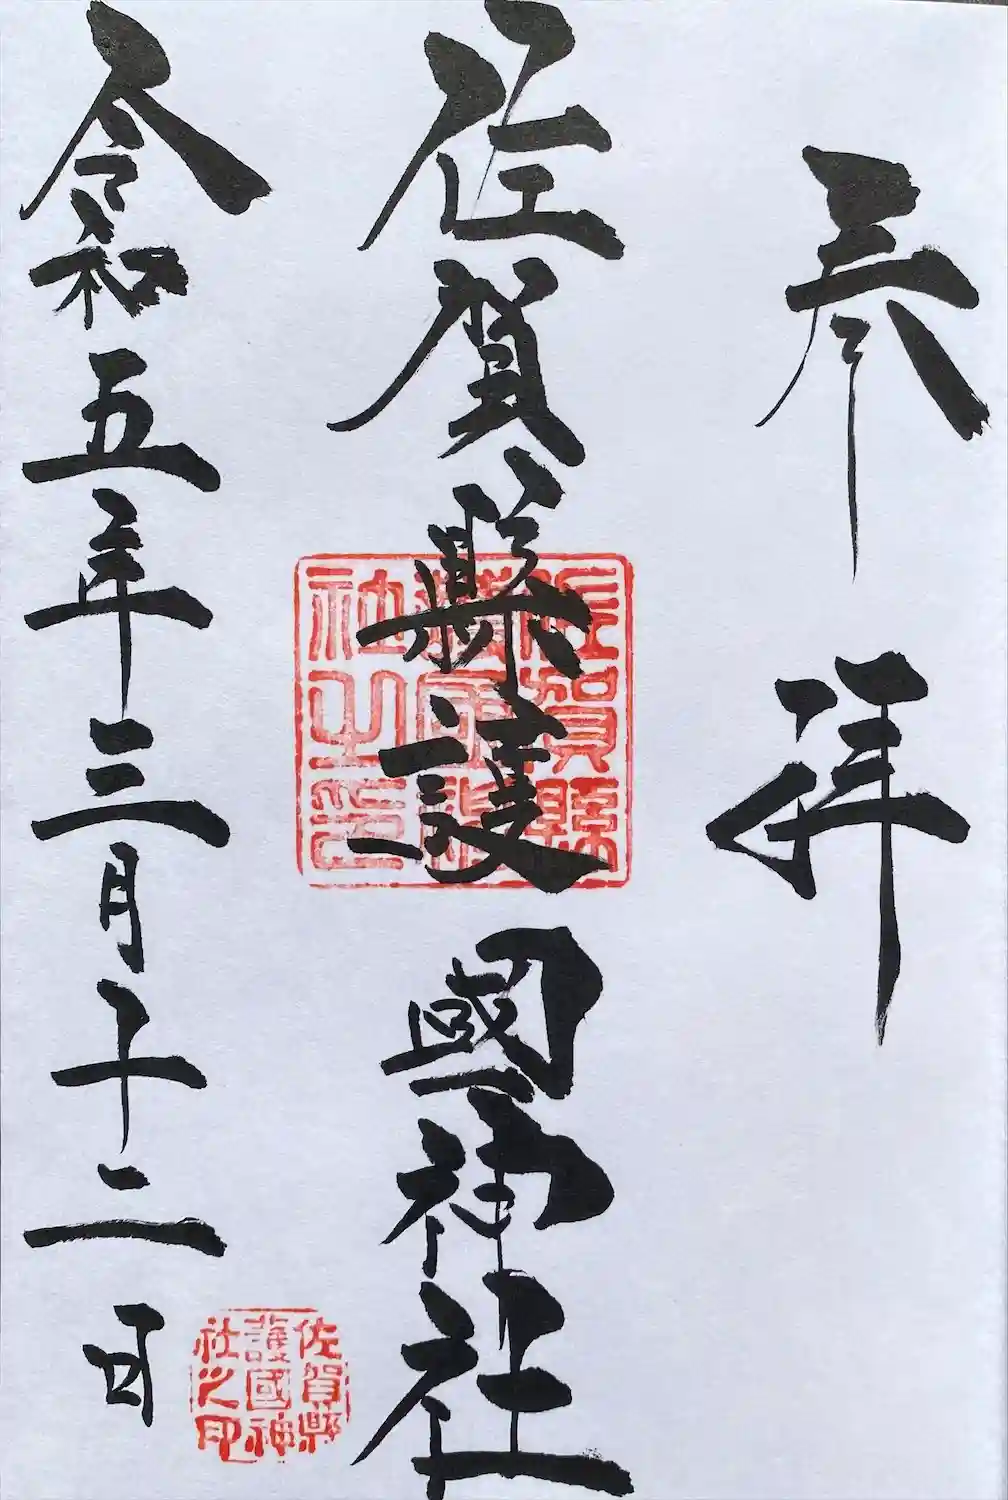 参拝
佐賀縣護國神社
佐賀縣
護國神
社之印
令和五年三月十二日
佐賀縣
護國神
社之印